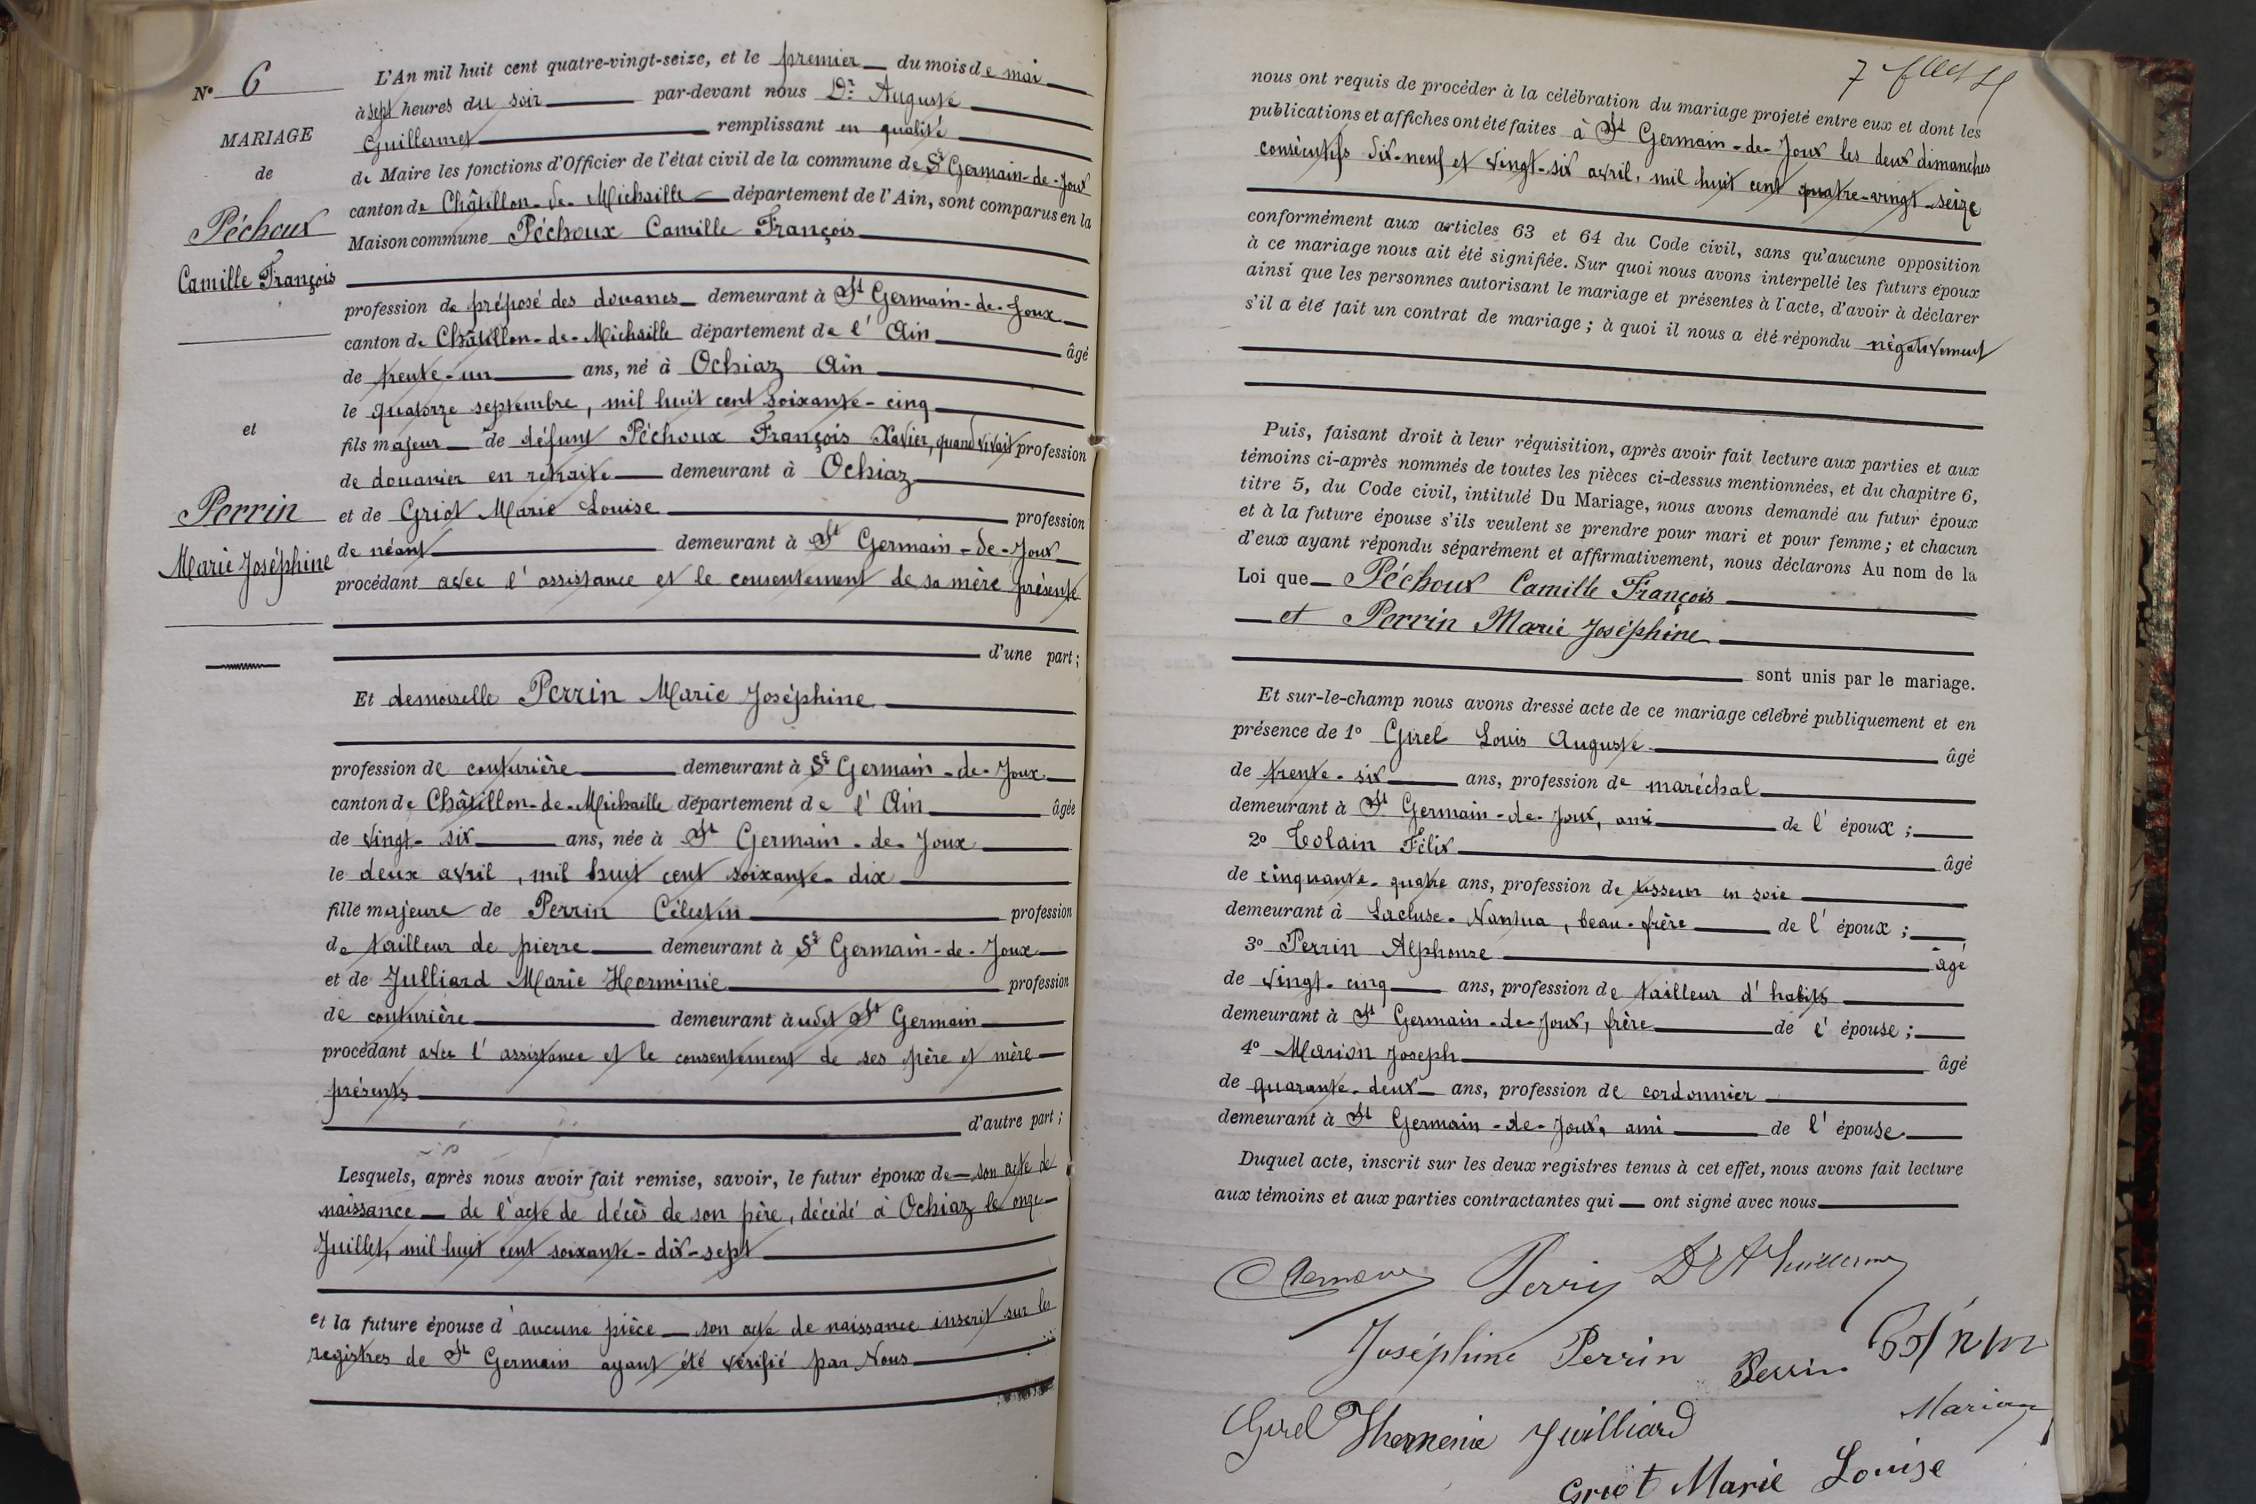 N° 6
MARIAGE
de
Péchoux
Camille François
et
Perrin
Marie Joséphine
L'An mil huit cent quatre-vingt-seize, et le premier du mois de mai
à sept heures du soir par-devant nous Dr. Auguste
Guillermet remplissant en qualité
de Maire les fonctions d'Officier de l'état civil de la commune de St Germain-de-Joux
canton de Châtillon-de-Michaille département de l'Ain, sont comparus en la
Maison commune Péchoux Camille François
profession de préposé des douanes demeurant à St Germain-de-Joux
canton de Châtillon-de-Michaille département de l'Ain âgé
de trente-un ans, né à Ochiaz Ain
le quatorze septembre, mil huit cent soixante-cinq
fils majeur de défunt Péchoux François Xavier, quand vivait profession
de douanier en retraite demeurant à Ochiaz
et de Griot Marie Louise profession
de néant demeurant à St Germain-de-Joux
procédant avec l'assistance et le consentement de sa mère présente
d'une part;
Et demoiselle Perrin Marie Joséphine
profession de couturière demeurant à St Germain-de-Joux
canton de Châtillon-de-Michaille département de l'Ain âgée
de vingt-six ans, née à St Germain-de-Joux
le deux avril, mil huit cent soixante-dix
fille majeure de Perrin Célestin profession
de tailleur de pierre demeurant à St Germain-de-Joux
et de Julliard Marie Herminie profession
de couturière demeurant à udit St Germain
procédant avec l'assistance et le consentement de ses père et mère
présents
d'autre part;
Lesquels, après nous avoir fait remise, savoir, le futur époux de son acte de
naissance de l'acte de décès de son père, décédé à Ochiaz le onze
Juillet, mil huit cent soixante-dix-sept
et la future épouse d'aucune pièce son acte de naissance inscrit sur les
registres de St Germain ayant été vérifié par Nous
nous ont requis de procéder à la célébration du mariage projeté entre eux et dont les
publications et affiches ont été faites à St Germain-de-Joux les deux dimanches
consécutifs dix-neuf et vingt-six avril, mil huit cent quatre-vingt-seize
conformément aux articles 63 et 64 du Code civil, sans qu'aucune opposition
à ce mariage nous ait été signifiée. Sur quoi nous avons interpellé les futurs époux
ainsi que les personnes autorisant le mariage et présentes à l'acte, d'avoir à déclarer
s'il a été fait un contrat de mariage; à quoi il nous a été répondu négativement
Puis, faisant droit à leur réquisition, après avoir fait lecture aux parties et aux
témoins ci-après nommés de toutes les pièces ci-dessus mentionnées, et du chapitre 6,
titre 5, du Code civil, intitulé Du Mariage, nous avons demandé au futur époux
et à la future épouse s'ils veulent se prendre pour mari et pour femme; et chacun
d'eux ayant répondu séparément et affirmativement, nous déclarons Au nom de la
Loi que Péchoux Camille François
et Perrin Marie Joséphine
sont unis par le mariage.
Et sur-le-champ nous avons dressé acte de ce mariage célébré publiquement et en
présence de 1° Girel Louis Auguste âgé
de trente-six ans, profession de maréchal
demeurant à St Germain-de-Joux, ami de l'époux;
2° Tolain Félix âgé
de cinquante-quatre ans, profession de tisseur en soie
demeurant à Lacluse-Nantua, beau-frère de l'époux;
3° Perrin Alphonse âgé
de vingt-cinq ans, profession de tailleur d'habits
demeurant à St Germain-de-Joux, frère de l'épouse;
4° Marion Joseph âgé
de quarante-deux ans, profession de cordonnier
demeurant à St Germain-de-Joux, ami de l'épouse
Duquel acte, inscrit sur les deux registres tenus à cet effet, nous avons fait lecture
aux témoins et aux parties contractantes qui ont signé avec nous
Perrin
Joséphine Perrin Perrin
Girel Juilliard Marion
Griot Marie Louise